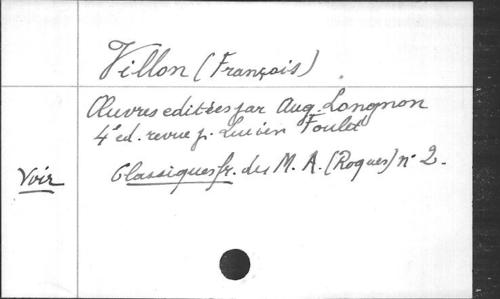 Villon (François).
Œuvres editées par Aug. Longnon
4e ed. revue p. Lucien Foulet
Voir Classiques fr. du M. A. (Roques) n° 2.